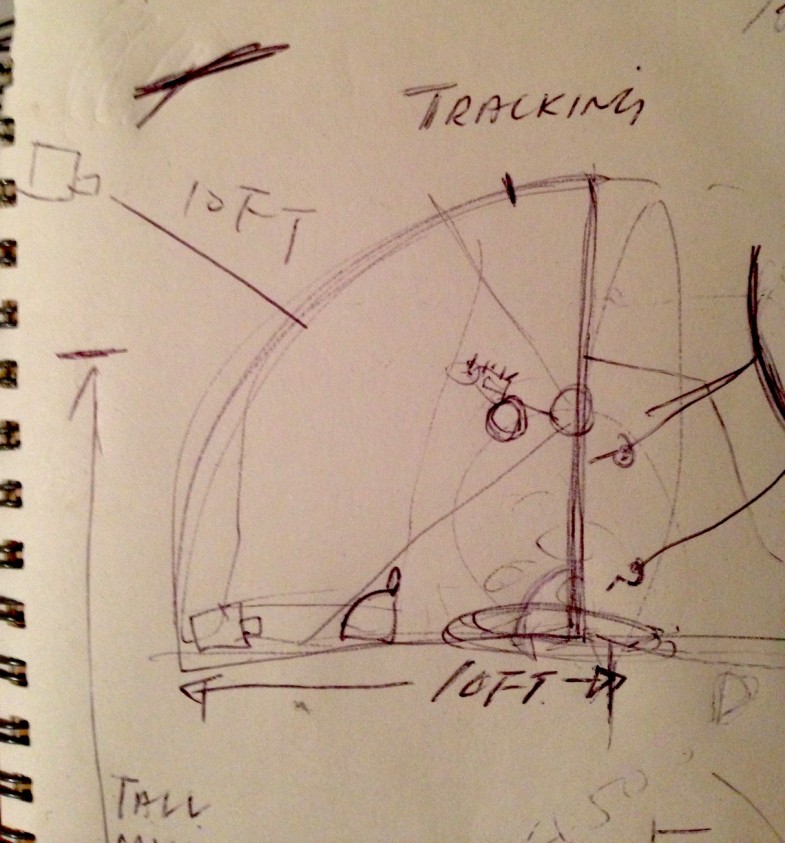 TRACKING
10FT
10FT
TALL